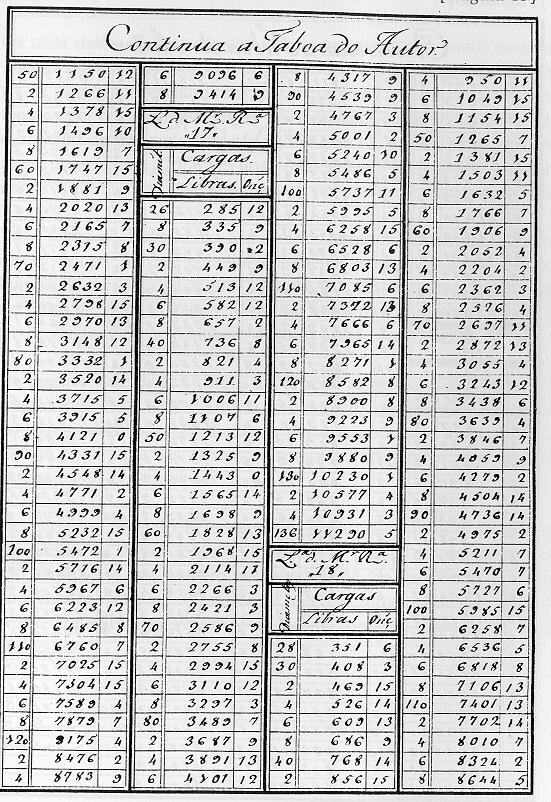 Continua a Taboa do Autor
50 1150 12
2 1266 11
4 1378 15
6 1496 10
8 1619 7
60 1747 15
2 1881 9
4 2020 13
6 2165 7
8 2315 8
70 2471 1
2 2632 3
4 2798 15
6 2970 13
8 3148 12
80 3332 1
2 3520 14
4 3715 5
6 3915 5
8 4121 0
90 4331 15
2 4548 14
4 4771 2
6 4999 4
8 5232 15
100 5472 1
2 5716 14
4 5967 6
6 6223 12
8 6485 8
110 6760 7
2 7025 15
4 7304 15
6 7589 4
8 7879 7
120 9175 4
2 8476 2
4 8783 9
6 9096 6
8 9414 9
L.ª d. M.r R.ª
"17"
Diamit.
Cargas.
Libras. Onç
26 285 12
8 335 9
30 390 2
2 449 9
4 513 12
6 582 12
8 657 2
40 736 8
2 821 4
4 911 3
6 1006 11
8 1107 6
50 1213 12
2 1325 9
4 1443 0
6 1565 14
8 1698 9
60 1828 13
2 1968 15
4 2114 11
6 2266 3
8 2421 3
70 2586 9
2 2755 8
4 2994 15
6 3110 12
8 3297 3
80 3489 7
2 3687 9
4 3891 13
6 4101 12
8 4317 9
90 4539 9
2 4767 3
4 5001 2
6 5240 10
8 5486 5
100 5737 11
2 5995 5
4 6258 15
6 6528 6
8 6803 13
110 7085 6
2 7372 13
4 7666 6
6 7965 14
8 8271 1
120 8582 8
2 8900 8
4 9223 9
6 9553 1
8 9880 9
130 10230 1
2 10577 4
4 10931 3
136 11290 5
L.ª d. M.r R.ª
"18"
Diamit.
Cargas
Libras Onç
28 351 6
30 408 3
2 469 15
4 526 14
6 609 13
8 686 9
40 768 14
2 856 15
4 950 11
6 1049 15
8 1154 15
50 1265 7
2 1381 15
4 1503 11
6 1632 5
8 1766 7
60 1906 9
2 2052 4
4 2204 2
6 2362 3
8 2526 4
70 2697 11
2 2872 13
4 3055 4
6 3243 12
8 3438 6
80 3639 4
2 3846 7
4 4059 9
6 4279 2
8 4504 14
90 4736 14
2 4975 2
4 5211 7
6 5470 7
8 5727 6
100 5985 15
2 6258 7
4 6536 5
6 6818 8
8 7106 13
110 7401 13
2 7702 14
4 8010 7
6 8324 2
8 8644 5